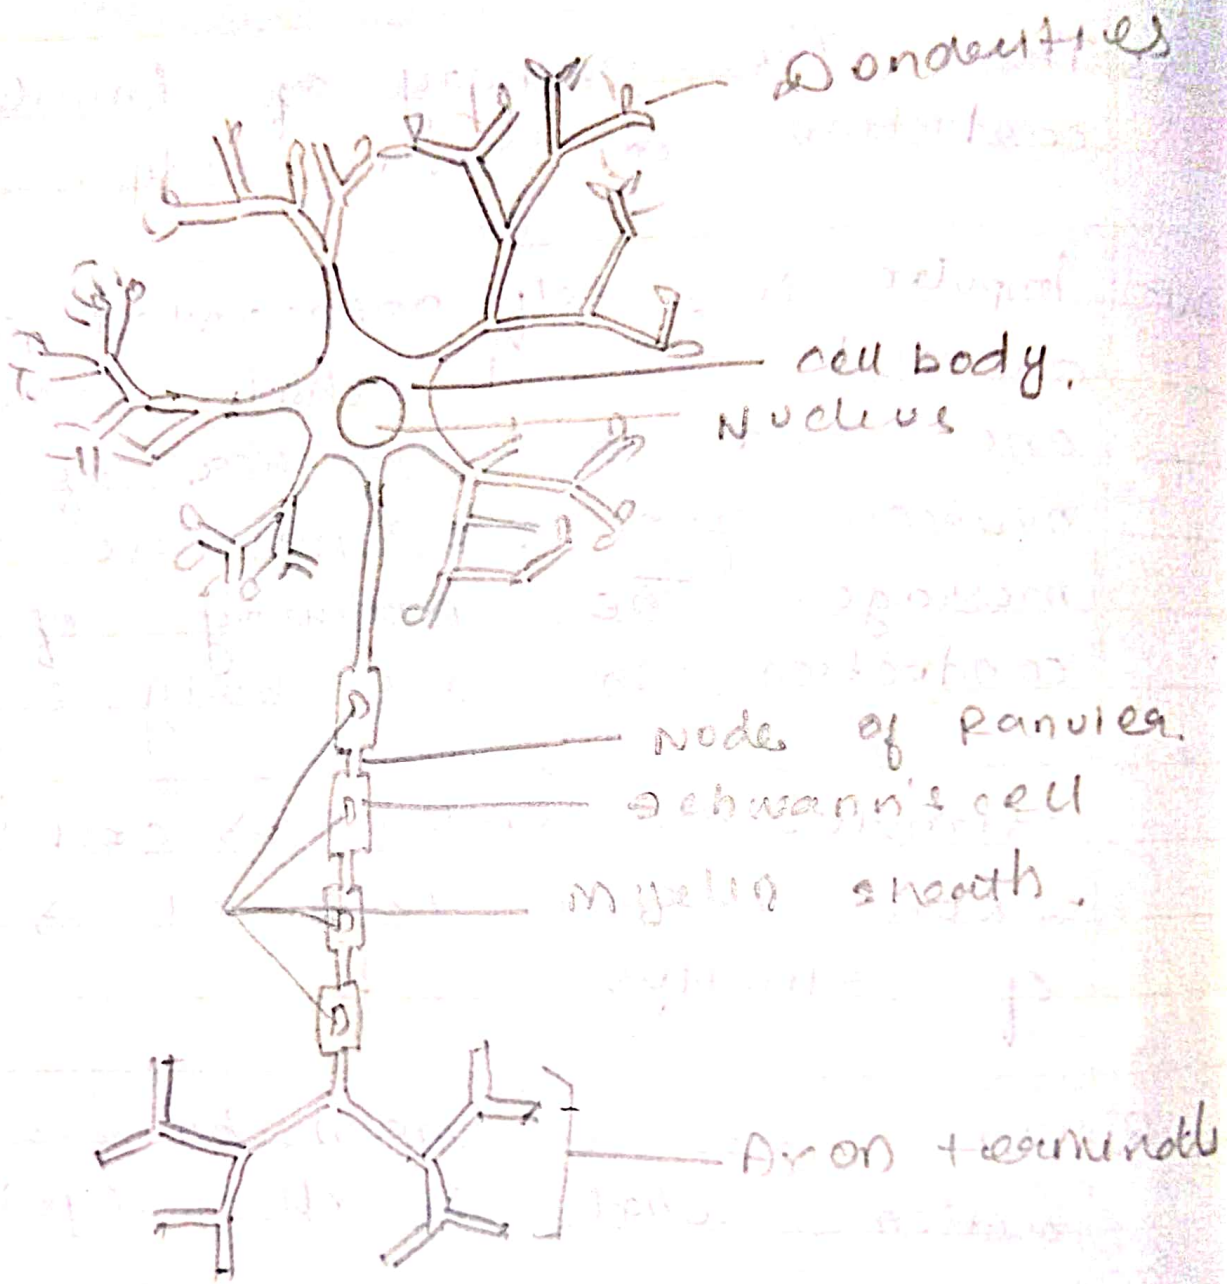 Dondeities
cell body.
Nucleus
Node of Ranvier
Schwann's cell
Myelin sheath.
Axon terminals